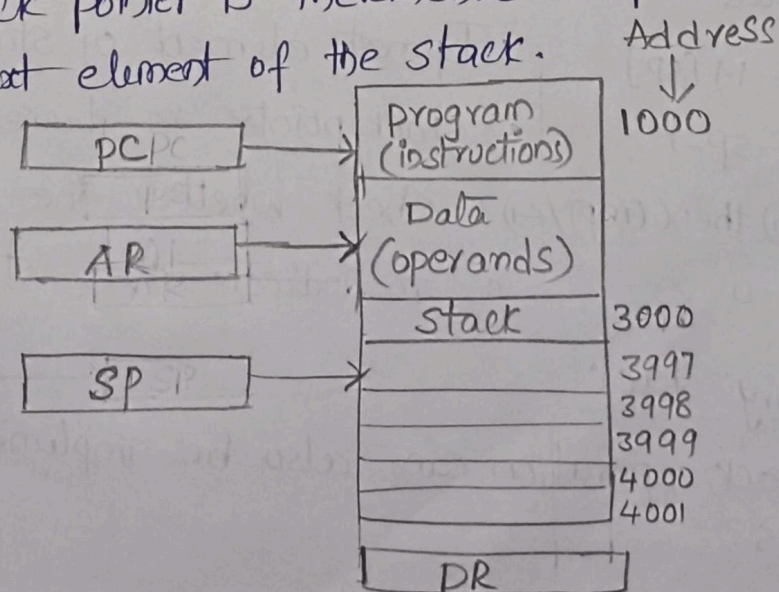 pointer is
next element of the stack.
Address
PC
program
(instructions)
1000
AR
Data
(operands)
stack
3000
SP
3997
3998
3999
4000
4001
DR